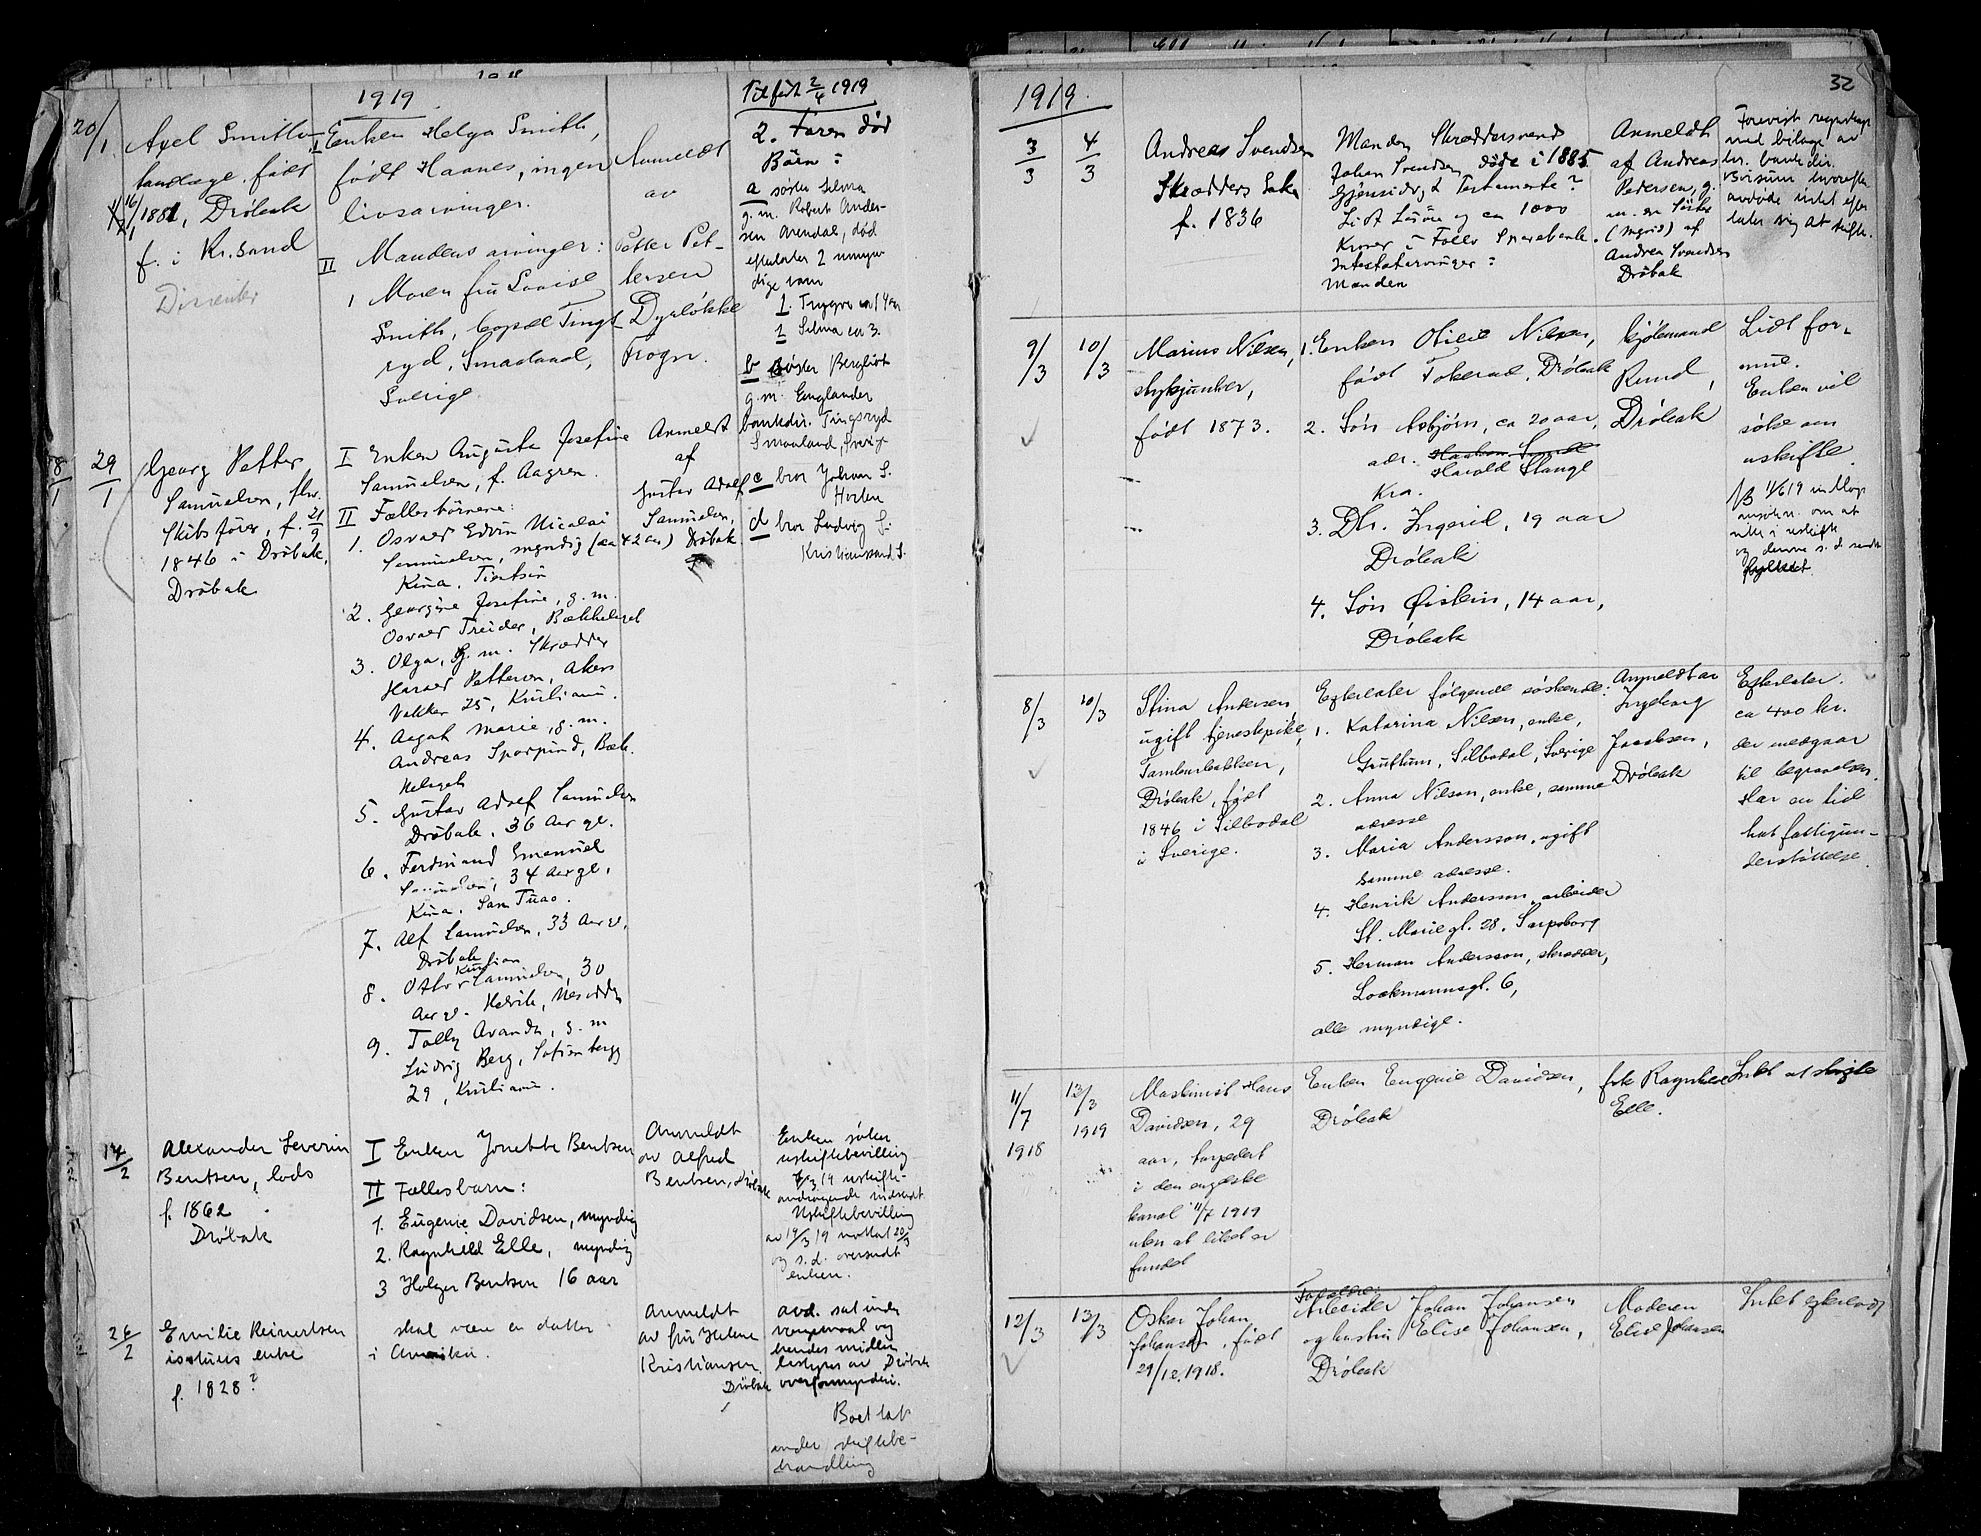 1919
20/1
Axel Smith
tandlæge, født
16/1 1881, Drøbak
f. i Kr.sand
I Enken Helga Smith,
født Hannes, ingen
livsarvinger.
II Mandens arvinger:
1 Moren fru Lovise
Smith, Tings-
ryd, Smaaland,
Sverige
Anmeldt
av
Petter Pet-
tersen
Dyrløkke
Frogn.
Tilført 2/4 1919
2. Faren død
Børn:
a søster Selma
g.m. Robert Ander-
sen Arendal, død
efterlater 2 umyn-
dige barn
1. Trygve ca 14 aar
2 Selma ca 3.
b søster Bergliot
g.m. Englander
bankdir. Tingsryd
Smaaland, Sverige
c bror Johan S.
Horten
d bror Ludvig S.
Kristianssand S.
8/1
29/1
Georg Petter
Samuelsen, fhv.
Skibsfører, f. 21/9
1846 i Drøbak,
Drøbak
I Enken Augusta Josefine
Samuelsen, f. Aagren.
II Fællesbørnene:
1. Osvald Edvin Nicolai
Samuelsen, myndig (ca 42 aar)
Kina. Tientsin
2. Georgine Josefine, g.m.
Osvald Treider, Bækkelaget
3. Olga, g.m. Skrædder
Harald Pettersen, Akers
Vakker 25, Kristiania.
4. Aagot Marie, g.m.
Andreas Sporpind, Bæk-
kelaget
5. Gustav Adolf Samuelsen
Drøbak. 36 Aar gl.
6. Ferdinand Emanuel
Samuelsen, 34 Aar gl.
Kina.
7. Alf Samuelsen, 33 Aar gl.
Drøbak
8. Othor Kristian Samuelsen, 30
Aar gl. Helvik, Nesodden
9. Tolly Avanda, g.m
Ludvig Berg, Sofienberggt
29, Kristiania.
Anmeldt
af
Gustav Adolf
Samuelsen,
Drøbak
14/2
Alexander Severin
Bentsen, lods
f. 1862
Drøbak
I Enken Jonette Bentsen
II Fællesbarn:
1. Eugenie Davidsen, myndig
2. Ragnhild Elle, myndig
3 Holger Bentsen 16 aar
Anmeldt
av Alfred
Bentsen, Drøbak
Enken søker
uskiftebevilling
19 uskifte-
andragende indsendt
Uskiftebevilling
av 19/3 19 mottat 20/3
og s.d. oversendt
enken.
26/2
Emilie Reinertsen
enke
f. 1828?
skal være en datter
i Amerika.
Anmeldt
av fru Helene
Kristiansen
Drøbak
avd. sat under
vergemaal og
hendes midler
bestyres av Drøbak
overformynderi.
Boet tat
under skiftebe-
handling
32
1919.
3/3
4/3
Andrea Svendsen
Skrædders Enke
f. 1836
Manden Skræddersvend
Johan Svendsen døde i 1885
Gjensidig Testamente?
Lidt Løsøre og ca 1000
Kroner i Follo Sparebank.
Intestatarvinger:
Manden
Anmeldt
af Andreas
Pedersen, g.
m. en Søster
(Ingrid) af
Andrea Svendsen
Drøbak
Forevist regnskap
med bilage av
hr. bankdir.
hvorefter
avdøde intet efter-
later sig at skifte.
9/3
10/3
Marius Nilsen,
styrkjunker,
født 1873.
1. Enken Otilie Nilsen,
født Tokerud, Drøbak
2. Søn Asbjørn, ca 20 aar,
adr.
Harald Stange
Kra.
3. Dtr. Ingerid, 19 aar
Drøbak
4. Søn Øistein, 14 aar,
Drøbak
kjøbmand
Rund,
Drøbak
Lidt for-
mue.
Enken vil
søke om
uskifte.
11/6 19
ansøkn. om at
sitte i uskifte
og denne s.d. sendt
8/3
10/3
Stina Andersen,
ugift tjenestepike,
Tamburbakken,
Drøbak, født
1846 i Silbodal
i Sverige.
Efterlater følgende søskende:
1. Katarina Nilsen, enke,
Gruttum, Silbodal, Sverige
2. Anna Nilson, enke, samme
adresse
3. Maria Andersson, ugift
samme adresse.
4. Henrik Andersson, arbeider
St. Mariegt. 28. Sarpsborg
5. Herman Andersson, skrædder,
Lockmannsgt. 6,
alle myndige.
Anmeldt av
Ingeborg
Jacobsen,
Drøbak
Efterlater
ca 400 kr.
der medgaar
til begravelsen.
Har en tid
hat fattigun-
derstøttelse.
11/7
1918
12/3
1919
Maskinist Hans
Davidsen, 29
aar, torpedert
i den engelske
kanal 11/7 1919
uten at liket er
fundet
Enken Eugenie Davidsen,
Drøbak
frk Ragnhild
Elle.
Intet at skifte
12/3
13/3
Oskar Johan
Johansen, født
29/12.1918.
Forældre:
Arbeider Johan Johansen
og hustru Elise Johansen,
Drøbak
Moderen
Elise Johansen
Intet efterladt